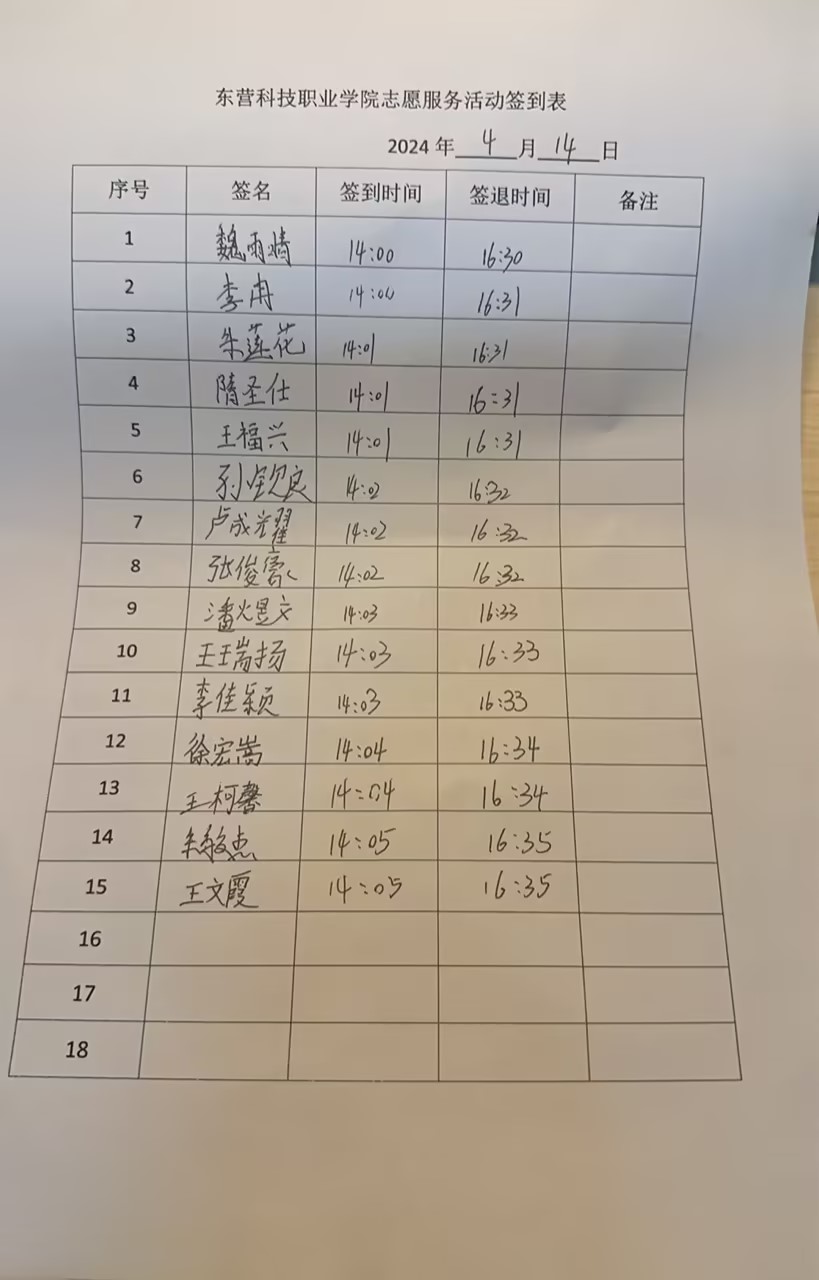 东营科技职业学院志愿服务活动签到表
2024 年 4 月 14 日
序号 签名 签到时间 签退时间 备注
1 魏雨晴 14:00 16:30
2 李冉 14:00 16:31
3 朱莲花 14:01 16:31
4 隋圣仕 14:01 16:31
5 王福兴 14:01 16:31
6 孙钦良 14:02 16:32
7 卢成光耀 14:02 16:32
8 张俊豪 14:02 16:32
9 潘煜文 14:03 16:33
10 王王瑞扬 14:03 16:33
11 李佳颖 14:03 16:33
12 徐宏嵩 14:04 16:34
13 王柯馨 14:04 16:34
14 朱敬杰 14:05 16:35
15 王文霞 14:05 16:35
16
17
18